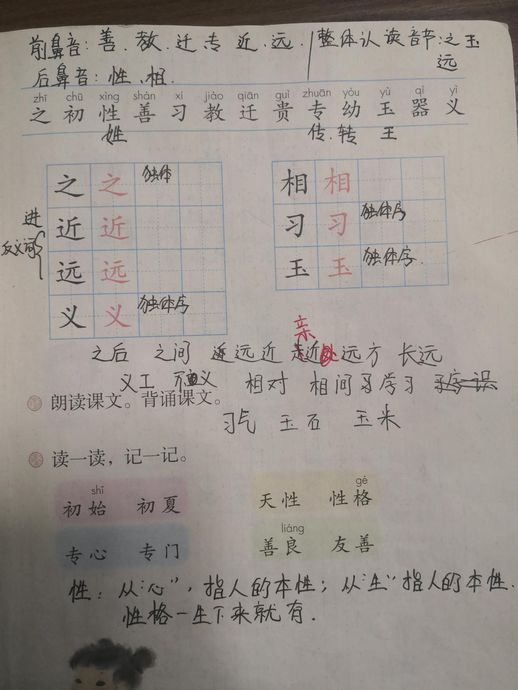 前鼻音：善、教、迁、专、近、远、整体认读音节：之、玉
远
后鼻音：性、相、
zhī chū xìng shàn xí jiào qiān guì zhuān yòu yù qì yì
之 初 性 善 习 教 迁 贵 专 幼 玉 器 义
姓 传、转 王
之 之 独体
相 相
进
近 近
习 习 独体字
反义词
远 远
玉 玉 独体字
义 义 独体字
亲
之后 之间 远近 近 远方 长远
义工 相对 相间 学习
朗读课文。背诵课文。
习气 玉石 玉米
读一读，记一记。
shǐ gé
初始 初夏 天性 性格
liáng
专心 专门 善良 友善
性：从“心”，指人的本性；从“生”指人的本性.
性格一生下来就有.